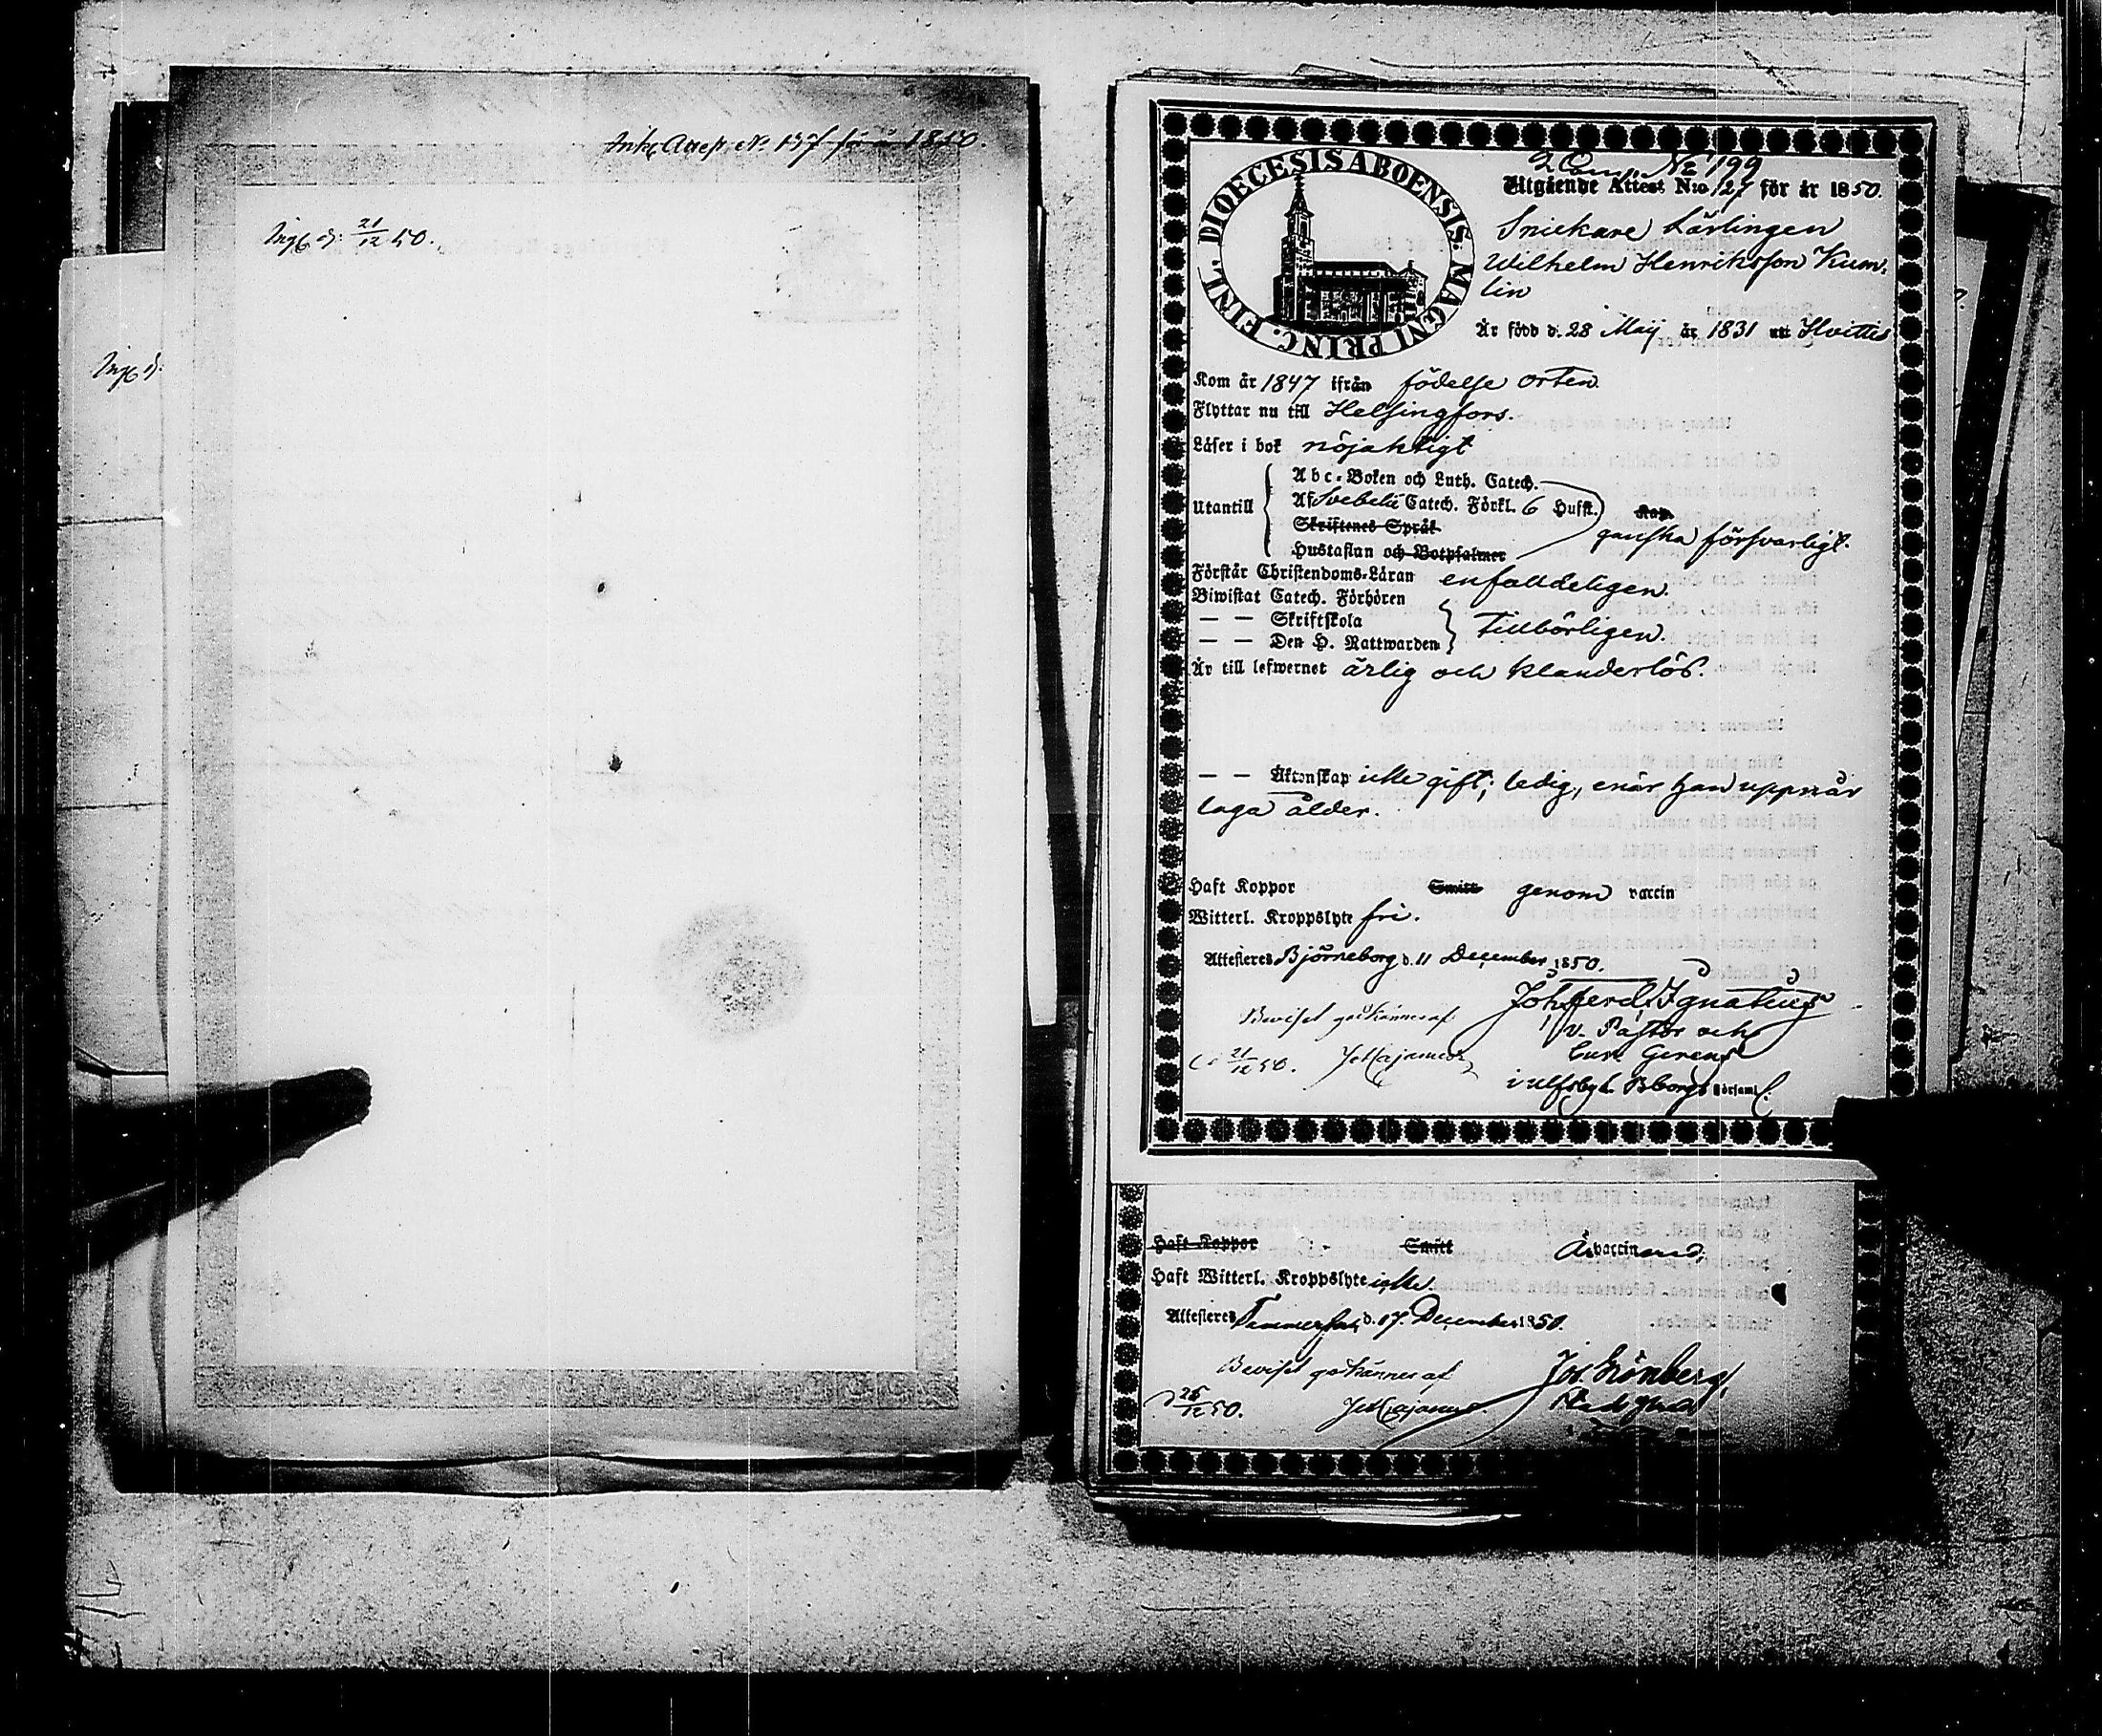 Ink. Attest No 137 för år 1850.
Ingf. d. 21/12 50.
Ingf. d.
DIOECESIS ABOENSIS. MAGNI PRINC. FINL.
No 199
Utgående Attest N:o 127 för år 1850.
Snickare Lärlingen
Wilhelm Henriksson Kum-
lin
Är född d. 28 Maij år 1831 uti Hvittis
Kom år 1847 ifrån födelse orten
Flyttar nu till Helsingfors.
Läser i bok nöjaktigt
Utantill
Abc-Boken och Luth. Catech.
Af Svebelii Catech. Förkl. 6 Hufst. Kap.
Skriftenes Språk
ganska försvarligt.
Hustaflan och Botpsalmer
Förstår Christendoms-Läran enfalldeligen.
Biwistat Catech. Förhören
— — Skriftskola
Tillbörligen.
— — Den H. Nattwarden
Är till lefwernet ärlig och klanderlös.
— — Äktenskap icke gift; ledig, enär han uppnår
laga ålder.
Haft Koppor Smitt genom vaccin
Witterl. Kroppslyte fri.
Attesteres Björneborg d. 11 December 1850.
Joh. Ferd. Ignatius
v. Pastor och
Beviset godkännes af
Cur. Gerens
d 21/12 50.
i Ulfsby & Bborgs Församl.
Haft Koppor Smitt Är vaccinerad.
Haft Witterl. Kroppslyte icke.
Attesteres Tammerfors d. 17 December 1850.
Beviset godkännes af
Jos. Grönberg
d 28/12 50.